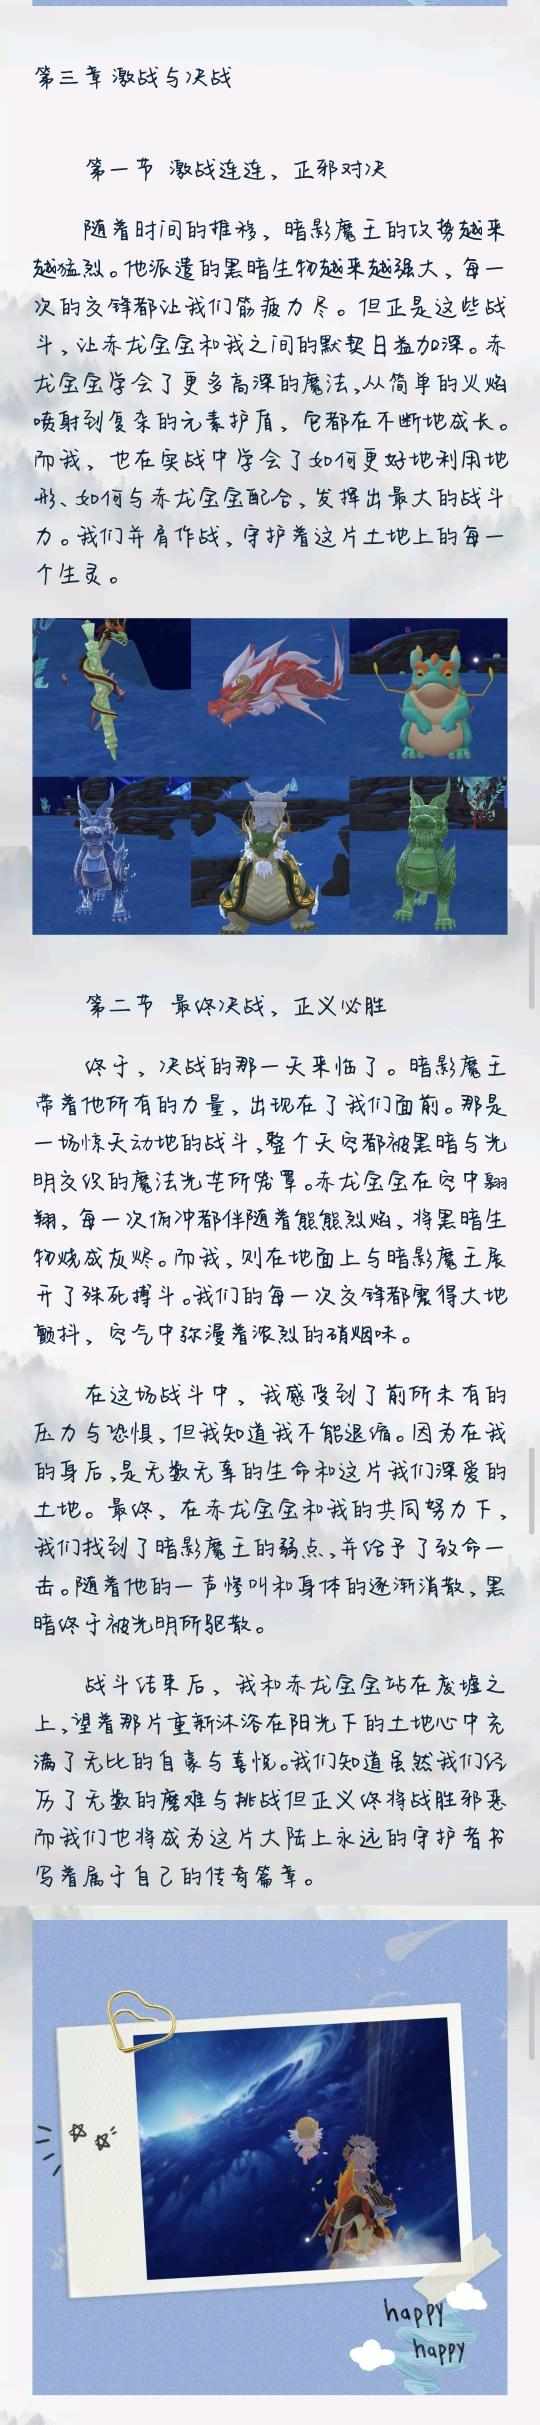 第三章 激战与决战
第一节 激战连连，正邪对决
随着时间的推移，暗影魔王的攻势越来
越猛烈。他派遣的黑暗生物越来越强大，每一
次的交锋都让我们筋疲力尽。但正是这些战
斗，让赤龙宝宝和我之间的默契日益加深。赤
龙宝宝学会了更多高深的魔法，从简单的火焰
喷射到复杂的元素护盾，它都在不断地成长。
而我，也在实战中学会了如何更好地利用地
形、如何与赤龙宝宝配合，发挥出最大的战斗
力。我们并肩作战，守护着这片土地上的每一
个生灵。
第二节 最终决战，正义必胜
终于，决战的那一天来临了。暗影魔王
带着他所有的力量，出现在了我们面前。那是
一场惊天动地的战斗，整个天空都被黑暗与光
明交织的魔法光芒所笼罩。赤龙宝宝在空中翱
翔，每一次俯冲都伴随着熊熊烈焰，将黑暗生
物烧成灰烬。而我，则在地面上与暗影魔王展
开了殊死搏斗。我们的每一次交锋都震得大地
颤抖，空气中弥漫着浓烈的硝烟味。
在这场战斗中，我感受到了前所未有的
压力与恐惧，但我知道我不能退缩。因为在我
的身后，是无数无辜的生命和这片我们深爱的
土地。最终，在赤龙宝宝和我的共同努力下，
我们找到了暗影魔王的弱点，并给予了致命一
击。随着他的一声惨叫和身体的逐渐消散，黑
暗终于被光明所驱散。
战斗结束后，我和赤龙宝宝站在废墟之
上，望着那片重新沐浴在阳光下的土地心中充
满了无比的自豪与喜悦。我们知道虽然我们经
历了无数的磨难与挑战但正义终将战胜邪恶
而我们也将成为这片大陆上永远的守护者书
写着属于自己的传奇篇章。
happy
happy